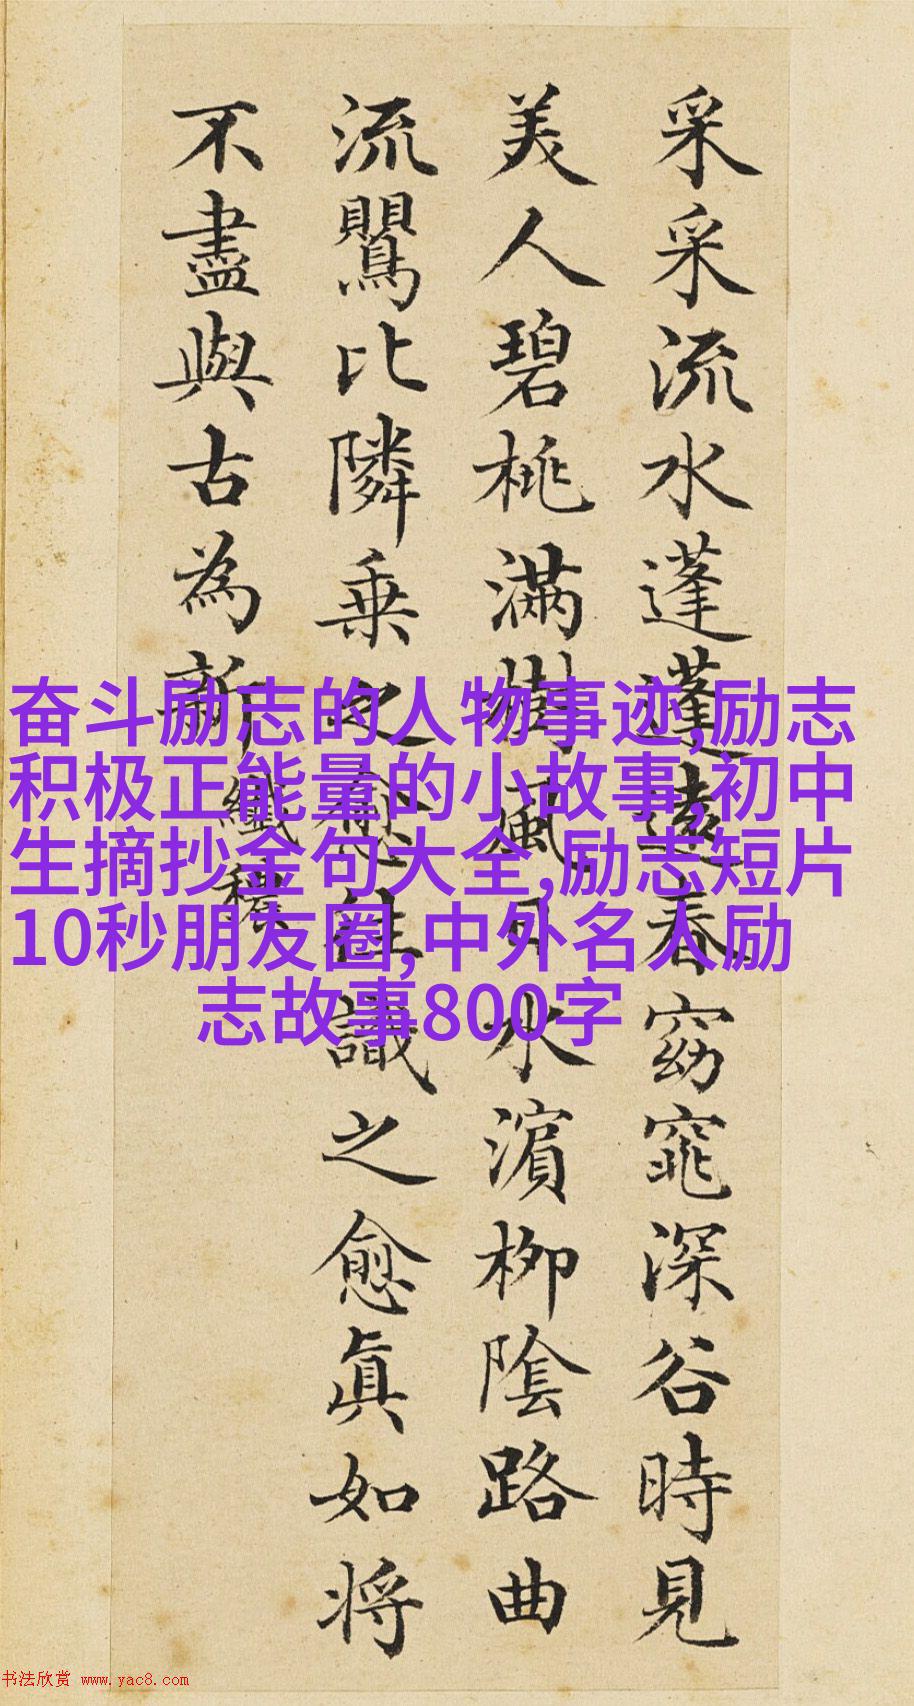 采采流水蓬蓬遠春窈窕深谷時見
美人碧桃滿樹風日水濱柳陰路曲
流鸎比隣乗之愈往識之愈眞如将
不盡與古為新
纖穠
奋斗励志的人物事迹,励志
积极正能量的小故事,初中
生摘抄金句大全,励志短片
10秒朋友圈,中外名人励
志故事800字
书法欣赏 www.yac8.com